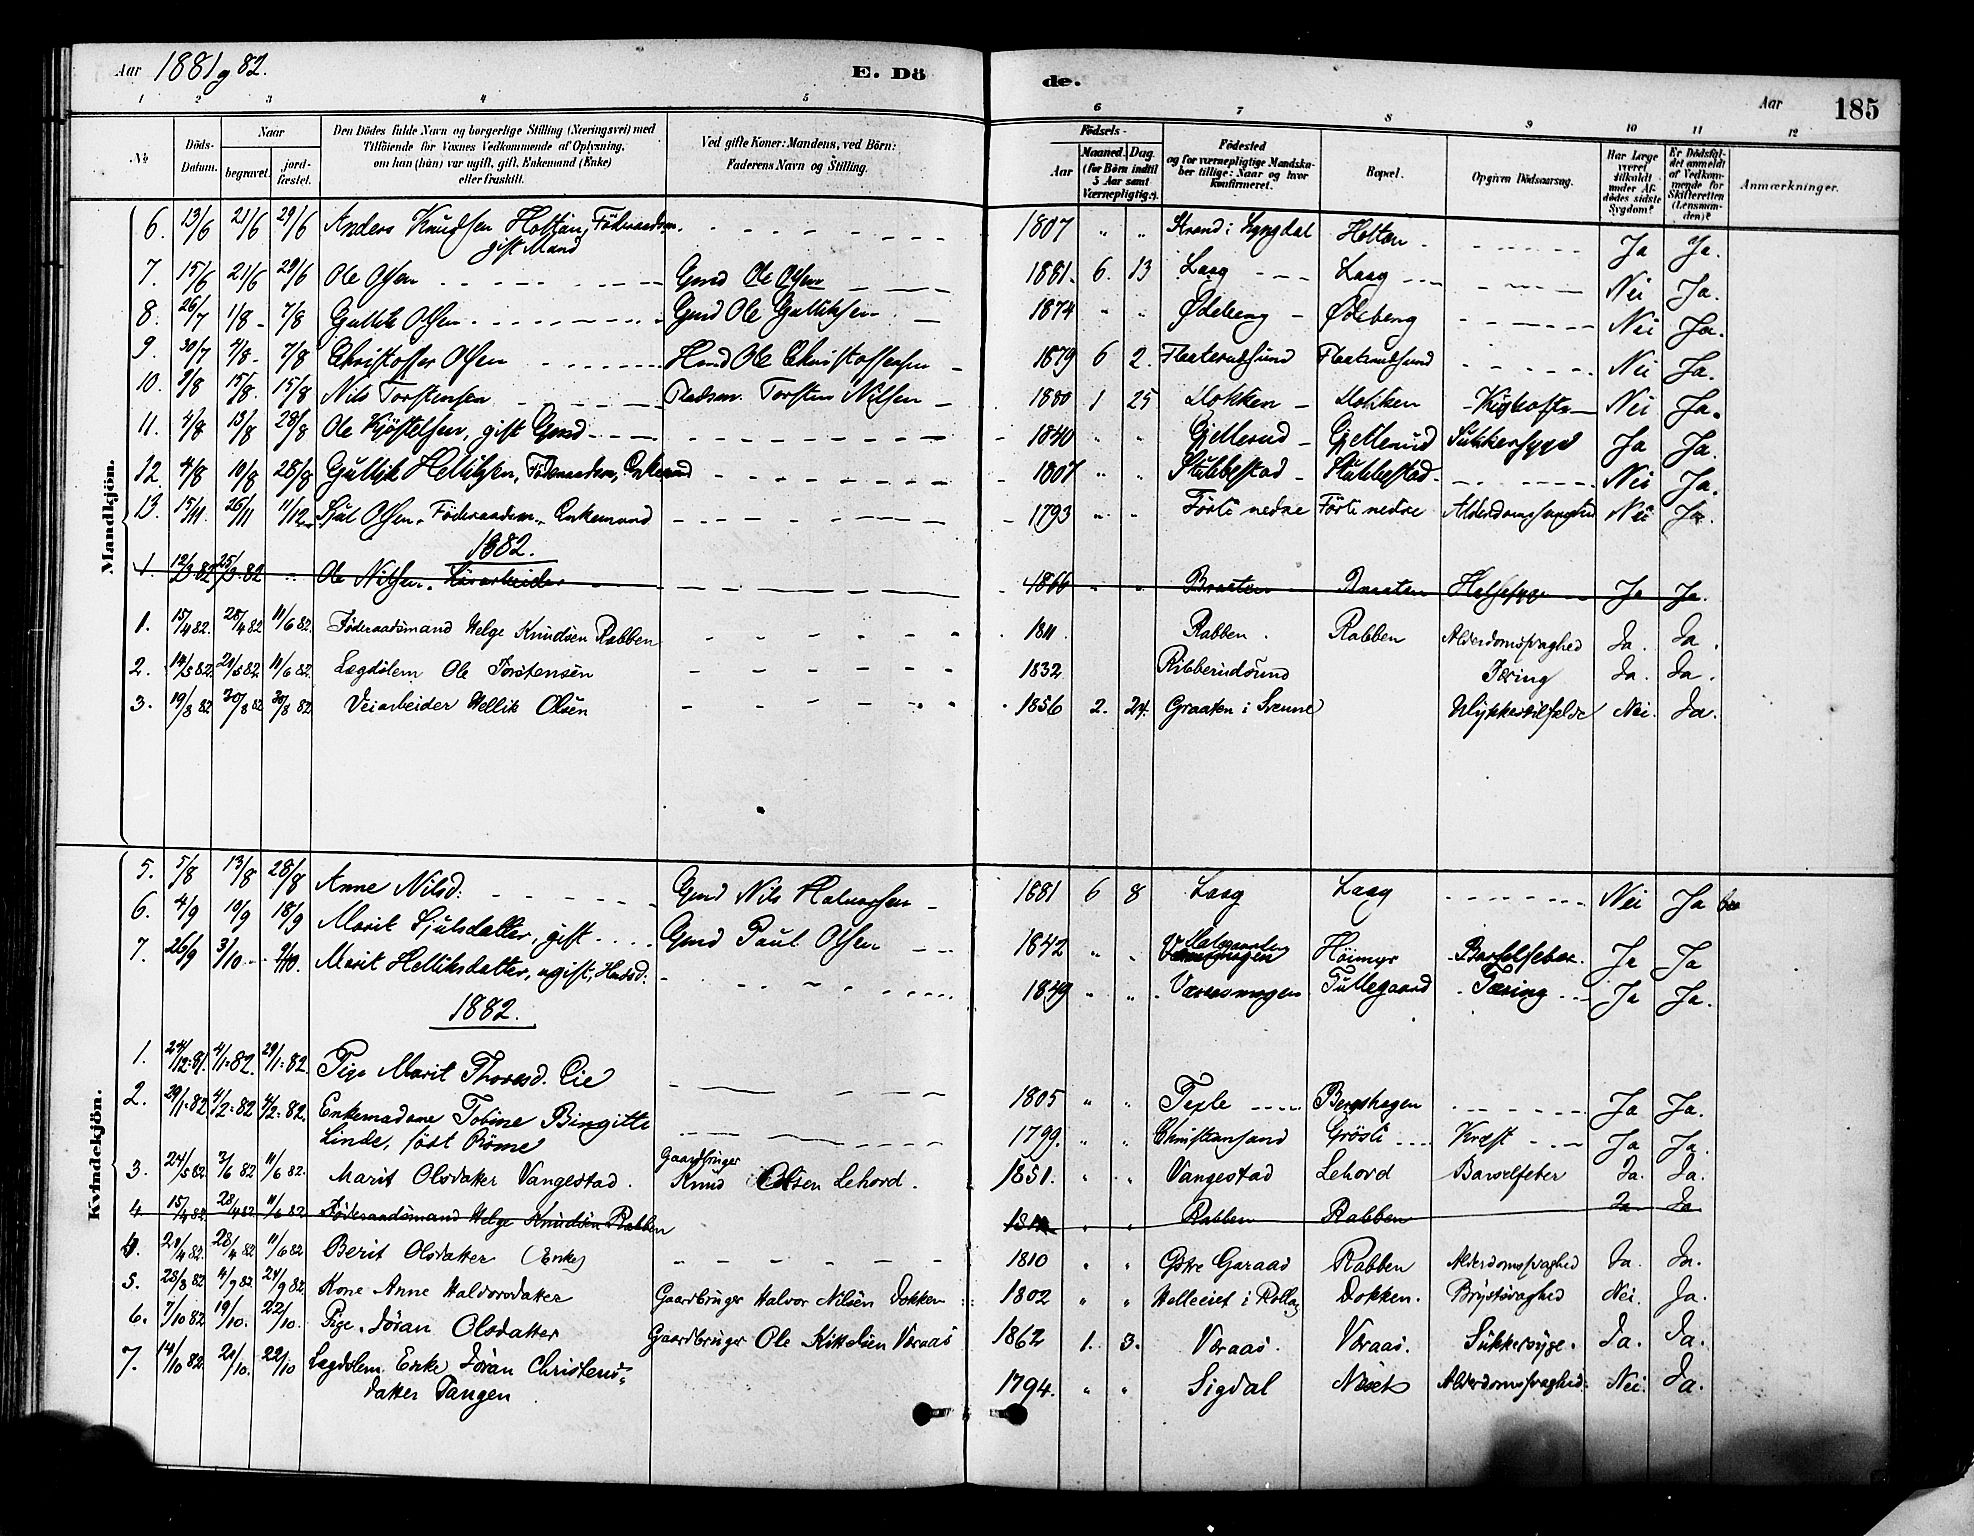 Aar 1881 og 82.
E. Dö
de.
Aar 185
1 2 3 4 5 6 7 8 9 10 11 12
No.
Döds-Datum.
Naar
begravet. jordfæstet.
Den Dödes fulde Navn og borgerlige Stilling (Næringsvei) med
Tilföiende for Voxnes Vedkommende af Oplysning,
om han (hun) var ugift, gift, Enkemand (Enke)
eller fraskilt.
Ved gifte Koner: Mandens, ved Börn:
Faderens Navn og Stilling.
Födsels-
Aar
Maaned. Dag.
(for Börn indtil
5 Aar samt
Værnepligtige).
Födested
og for værnepligtige Mandskaber tillige: Naar og hvor
konfirmeret.
Bopæl.
Opgiven Dödsaarsag.
Har Læge
været
tilkaldt
under Afdödes sidste
Sygdom?
Er Dödsfaldet anmeldt
af Vedkommende for
Skifteretten
(Lensmanden)?
Anmærkninger.
Mandkjön.
6. 13/6 21/6 29/6 Anders Knudsen Holtan, Föderaadsm. 1807 " " Strand i Lyngdal Holtan Ja Ja.
gift Mand
7. 15/6 21/6 29/6 Ole Olsen Gmd Ole Olsen 1881. 6. 13 Laag Laag Nei Ja.
8. 26/7 1/8 7/8 Gullik Olsen Gmd Ole Gulliksen 1874 " " Ødeberg Ødeberg Nei Ja.
9. 30/7 7/8 7/8 Christoffer Olsen Hmd Ole Christoffersen 1879 6 2. Flaterudsund Flaterudsund Nei Ja.
10. 9/8 15/8. 15/8 Nils Torstensen Pladsm. Torsten Nilsen 1880 1 25 Dokken Dokken Kighoste Nei Ja.
11. 4/8 13/8 28/8 Ole Kjöstelsen, gift Gmd 1840 " " Gjellerud Gjellerud Sukkersyge Ja Ja.
12. 4/8 10/8 28/8 Gullik Helliksen, Föderaadsm, Enkemd 1807 " " Stubbestad Stubbestad Nei Ja.
13. 15/11. 26/11 11/12 Sjul Olsen, Föderaadsm., Enkemand 1793 " " Förli nedre Förli nedre Alderdomssvaghed Nei Ja.
1882.
1. 12/3 82 25/3 82 Ole Nilsen, 1866 " " Braaten Braaten Halssyge Ja Ja.
1. 15/4 82. 28/4 82 11/6 82. Föderaadsmand Helge Knudsen Rabben 1811. Rabben. Rabben Alderdomssvaghed Ja. Ja.
2. 14/5 82. 21/5 82 11/6 82 Lægdslem Ole Torstensen 1832 Ribberudsund Tæring Ja. Ja.
3. 19/8 82 30/8 82 30/8 82. Veiarbeider Hellik Olsen 1856 2. 24. Graaten i Svenne Ulykkestilfælde Nei. Ja.
Kvindekjön.
5. 5/8 13/8 28/8 Anne Nilsd. Gmd Nils Halvorsen 1881 6 8 Laag Laag Nei Ja
6. 4/9 10/9 18/9 Marit Sjulsdatter, gift Gmd Paul Olsen 1842 " " Höimyr Barselfeber Ja Ja
7. 26/9 3/10 9/10. Marit Helliksdatter, ugift, Huusd: 1849 " " Væraasmogen Tullegaard Tæring Ja Ja.
1882.
1. 24/12.81. 4/1.82. 29/1.82 Pige Marit Thoresd. Lie 1805 " " Texle Bergshagen Ja Ja.
2. 29/1.82 4/2.82 4/2.82. Enkemadame Tobine Birgitte
Linde, föst Röme 1799. " " Christiansand Grösli Kræft Ja Ja.
3. 24/5 82. 3/6 82 11/6 82. Marit Olsdatter Vangestad. Gaardbruger
Knud Olsen Lehord. 1851. " " Vangestad Lehord Barselfeber Ja. Ja.
4 15/4 82. 28/4 82. 11/6 82 Föderaadsmand Helge Knudsen Rabben " " Rabben Rabben Ja Ja
4. 21/4 82. 28/4 82 11/6 82 Berit Olsdatter (Enke) 1810 " " Gstre Garaas Rabben Alderdomssvaghed Ja. Ja.
5. 28/8 82 11/9 82 24/9 82. Kone Anne Halvorsdatter Gaardbruger Halvor Nilsen Dokken 1802 " " Helleeiet i Rollag Dokken. Brystsvaghed Nei. Ja.
6. 7/10 82 19/10. 22/10. Pige Jöran Olsdatter Gaardbruger Ole Kittelsen Væraas 1862 1. 3. Væraas. Væraas. Sukkersyge. Ja. Ja.
7. 14/10 82 21/10. 22/10 Lægdslem Enke Jöran Christensdatter Tangen 1794. " " Sigdal Næset Alderdomssvaghed. Nei. Ja.